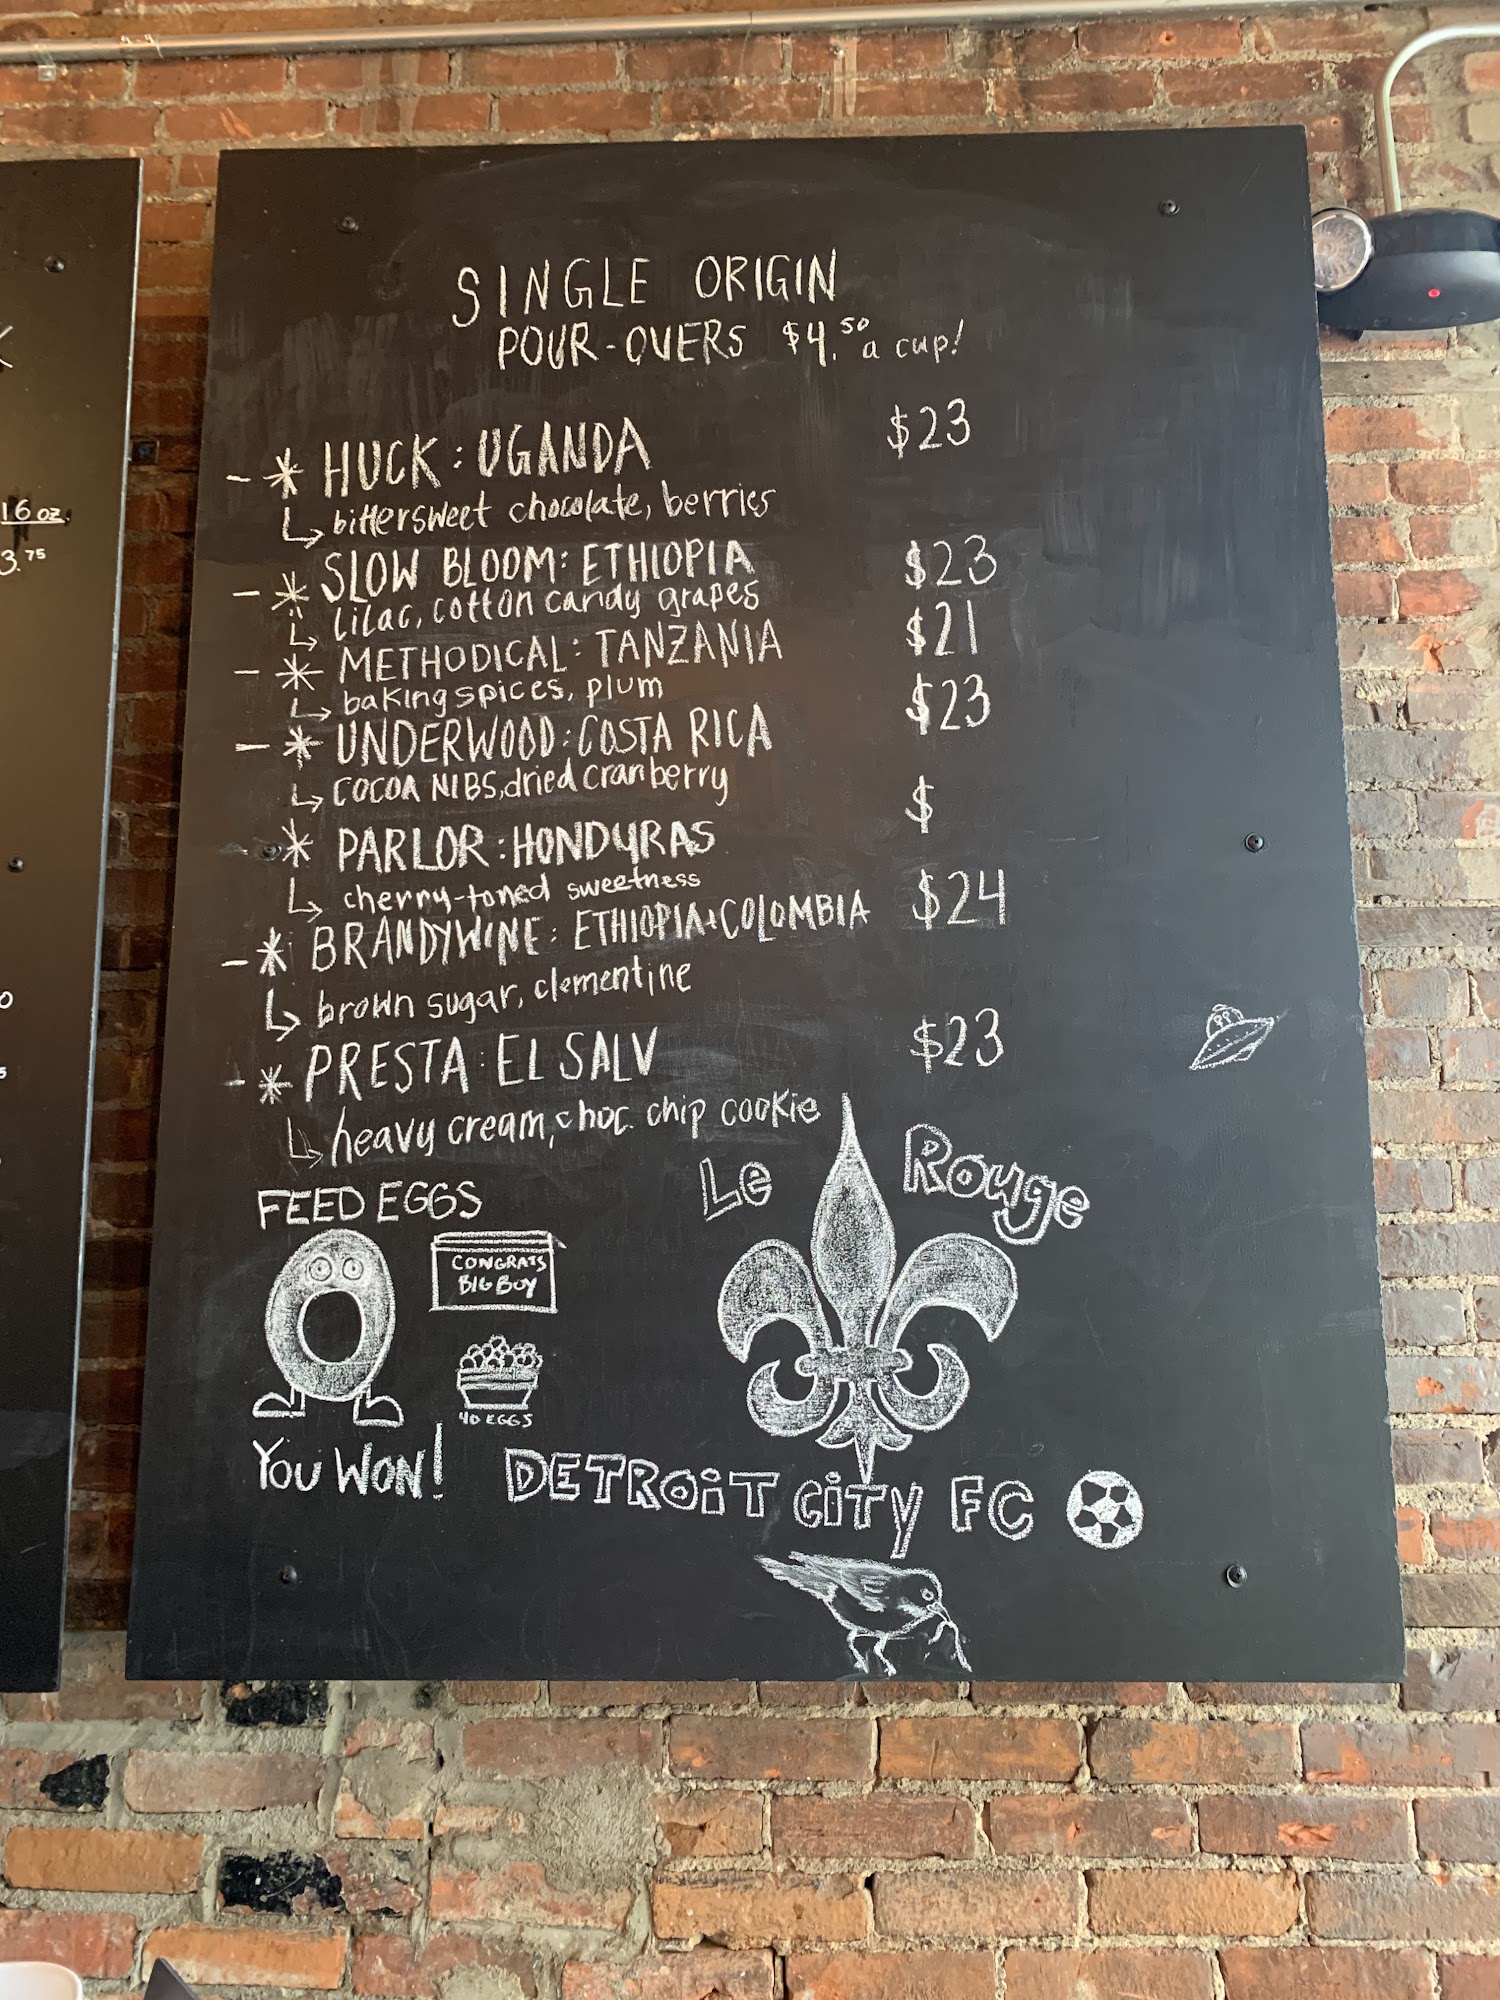 SINGLE ORIGIN
POUR-OVERS $4.50 a cup!
- * HUCK: UGANDA $23
↳ bittersweet chocolate, berries
- * SLOW BLOOM: ETHIOPIA $23
↳ lilac, cotton candy grapes
- * METHODICAL: TANZANIA $21
↳ baking spices, plum
- * UNDERWOOD: COSTA RICA $23
↳ COCOA NIBS, dried cranberry
* PARLOR: HONDURAS $
↳ cherry-toned sweetness
- * BRANDYWINE: ETHIOPIA + COLOMBIA $24
↳ brown sugar, clementine
- * PRESTA: EL SALV $23
↳ heavy cream, choc. chip cookie
FEED EGGS
CONGRATS
BIG BOY
40 EGGS
YOU WON!
Le Rouge
DETROIT CITY FC
16 oz.
3.75